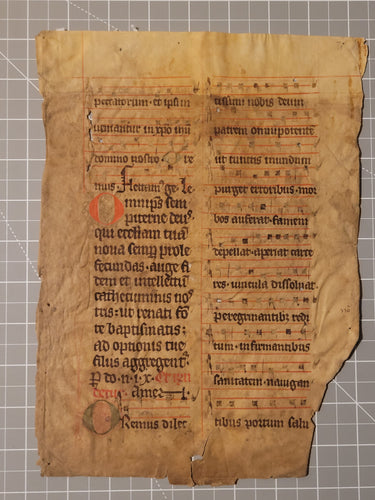 peccatorum · et ipsi in
veniantur in xpo ihu
domino nostro · Ore
mus Flectam⁹ ge· Le
Omnip̄s sem
piterne deus
qui ecclesiam tuā
noua semp̄ prole
fecundas · auge fi
dem et intellectū
cathecuminis nos
tris: ut renati fō
te baptismatis:
adoptionis tue
filiis aggregent'
P do· n· i· x·
Amen
Oremus dilec
tissimi nobis deum
patrem omnipotentē
ut cunctis mundum
purget erroribus· mor
bos auferat· famem
depellat· aperiat carce
res· vincula dissoluat·
peregrinantibȝ redi
tum· infirmantibus
sanitatem· nauigan
tibus portum salu